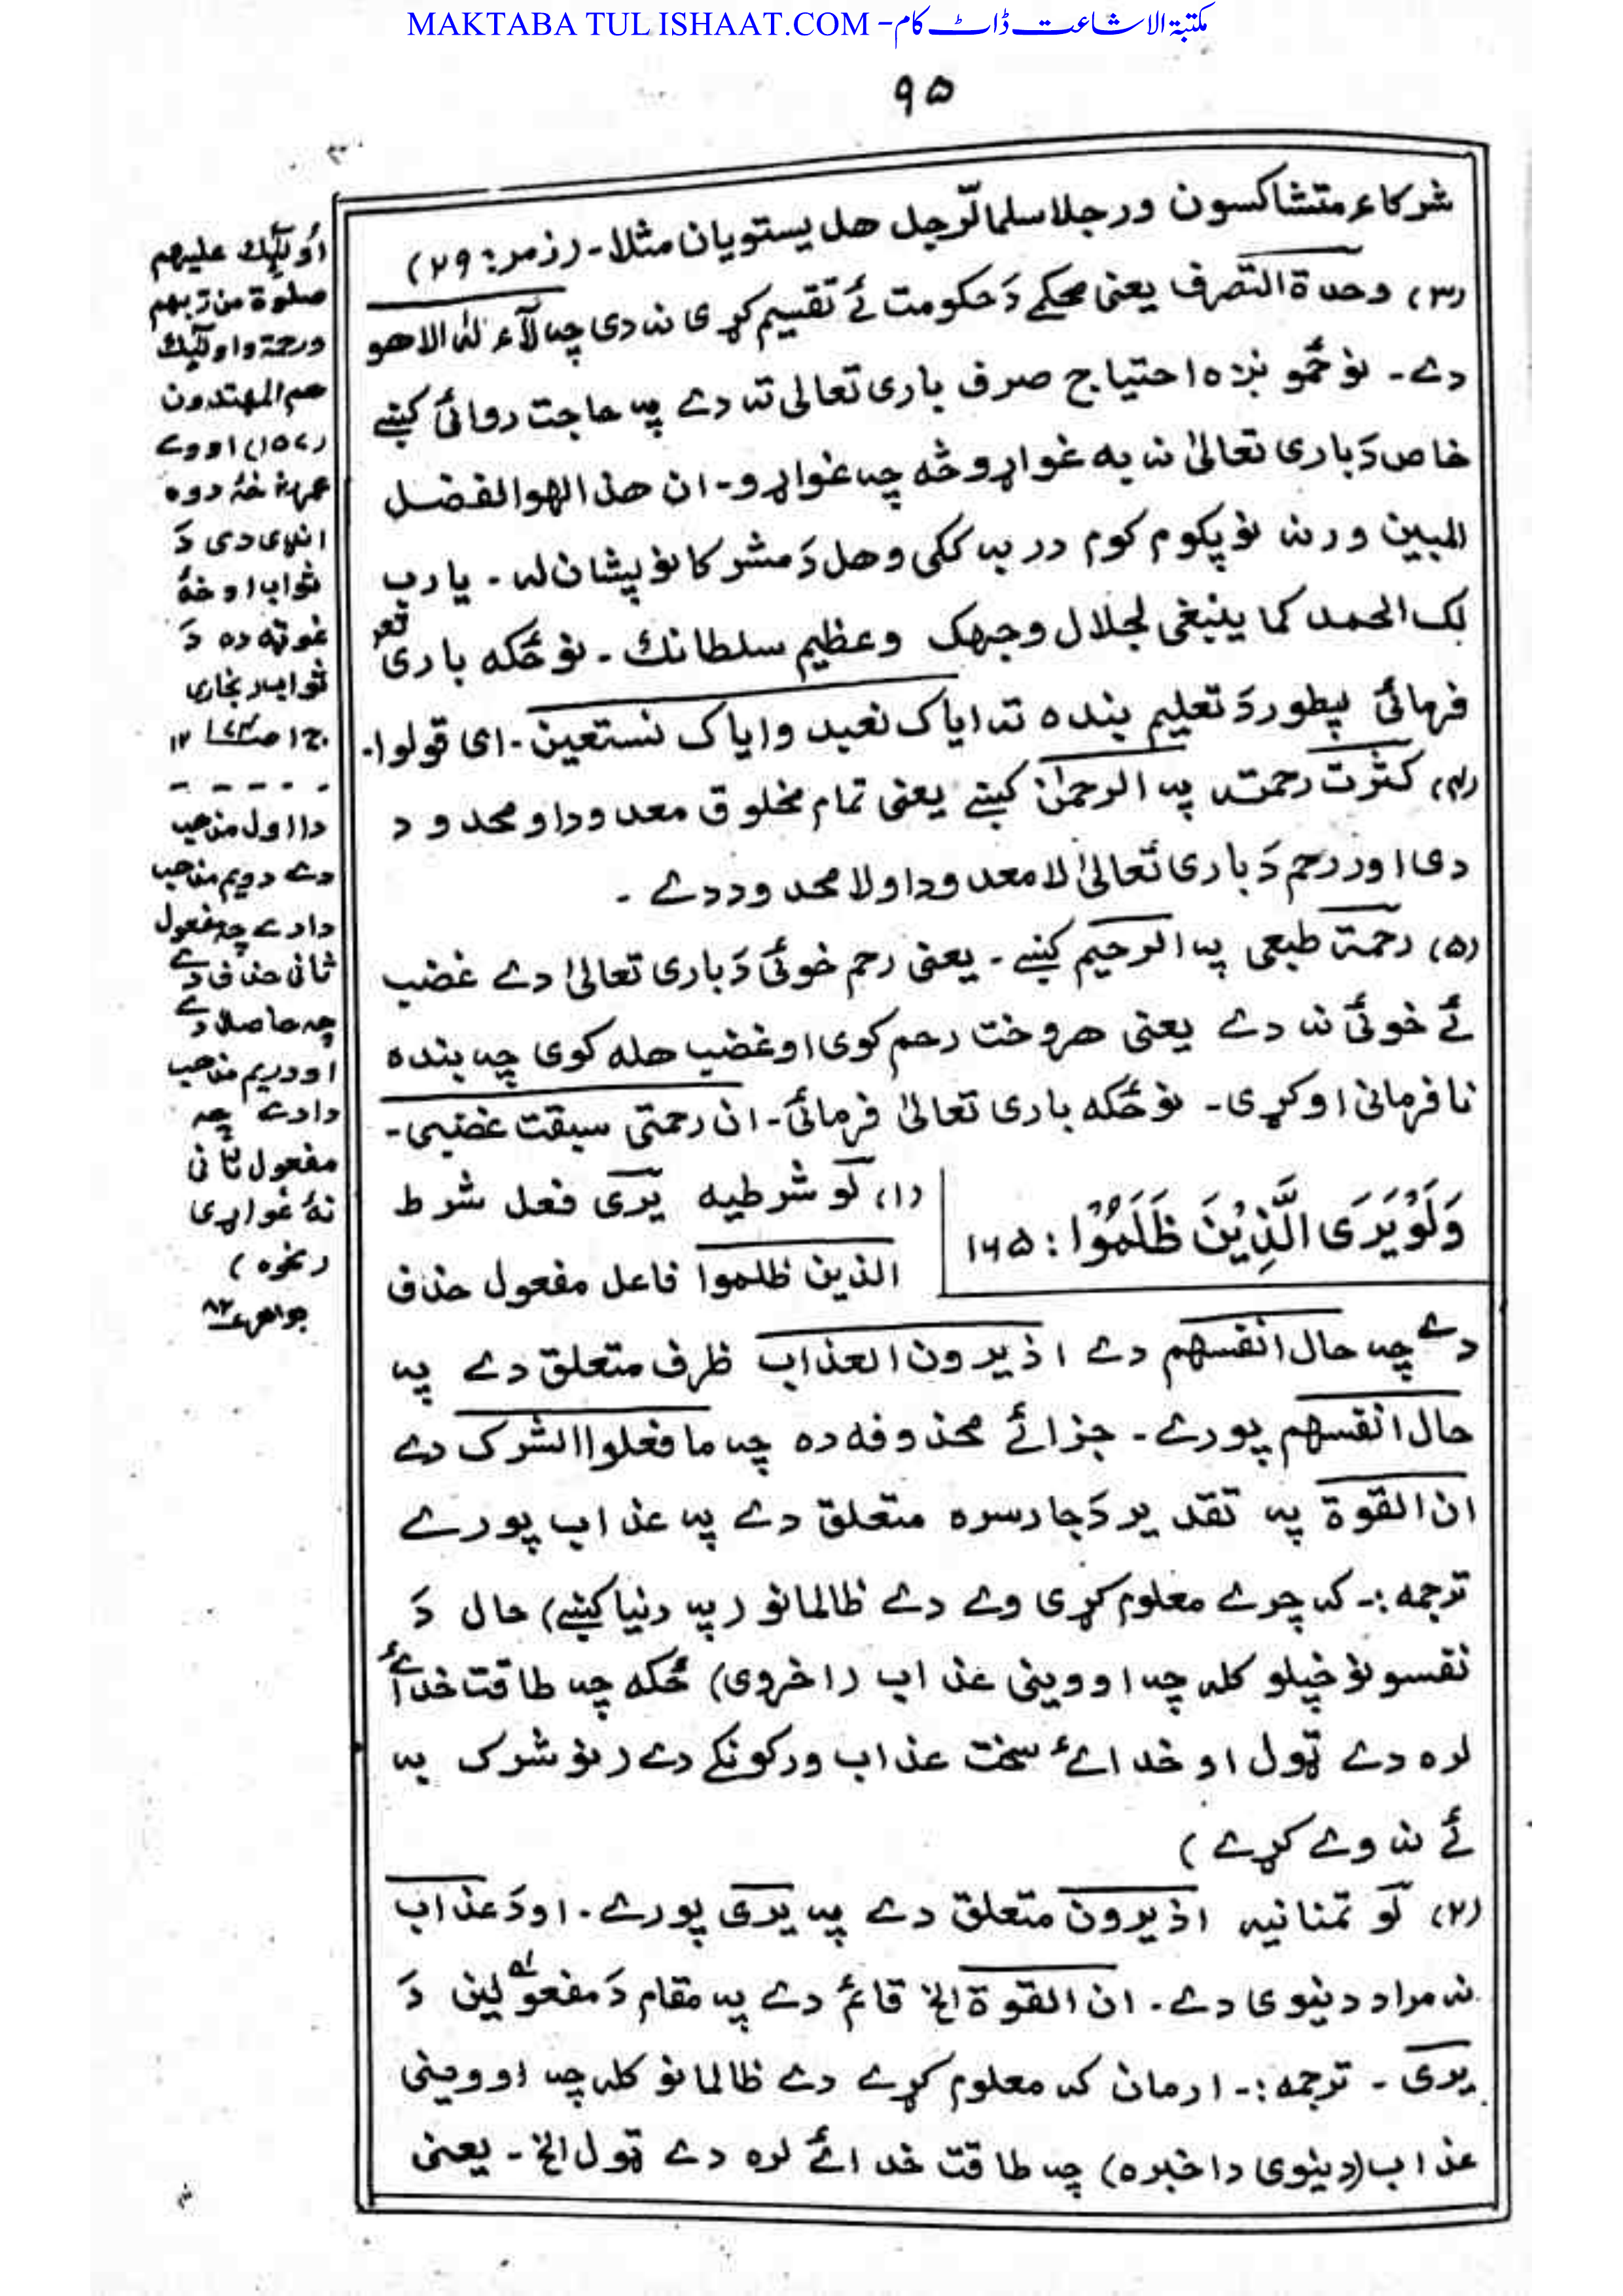 MAKTABA TUL ISHAAT.COM - مکتبۃ الاشاعت ڈاٹ کام
۹۵
شركاء متشاكسون ورجلا سلما لّرجل هل يستويان مثلا۔ (زمر: ۲۹)
(۳) وحدة التصرف یعنی محکمے دَ حکومت ئے تقسیم کړی نہ دی چہ لآ ءالٰہ الا ھو
دے۔ نو ځمونږہ احتیاج صرف باری تعالی تہ دے پہ حاجت روائی کښے
خاص دَ باری تعالیٰ نہ بہ غواړو څہ چہ غواړو۔ ان هذا لهو الفضل
المبين ورنہ نو پکوم کوم در بہ ککی وهل دَ مشرکانو پشان لہ۔ یا رب
لک الحمد كما ينبغي لجلال وجهک وعظيم سلطانك۔ نو ځکہ باری تعٰ
فرمائی پطور دَ تعلیم بندہ تہ ایاک نعبد وایاک نستعین۔ ای قولوا۔
(۴) کثرت رحمت پہ الرحمٰن کښے یعنی تمام مخلوق معدود او محدود
دی اور رحم دَ باری تعالیٰ لا معدود او لا محدود دے۔
(۵) رحمة طبعی پہ الرحیم کښے۔ یعنی رحم خوئی دَ باری تعالیٰ دے غضب
ئے خوئی نہ دے یعنی هر وخت رحم کوی او غضب هلہ کوی چہ بندہ
نافرمانی اوکړی۔ نو ځکہ باری تعالیٰ فرمائی۔ ان رحمتی سبقت غضبی۔
وَلَوْ يَرَى الَّذِيْنَ ظَلَمُوْا: ۱۶۵
(۱) لَو شرطیہ یَرَی فعل شرط
الذین ظلموا فاعل مفعول حذف
دے چہ حال انفسهم دے اذ یرون العذاب ظرف متعلق دے پہ
حال انفسهم پورے۔ جزائے محذوفہ دہ چہ ما فعلوا الشرک دے
ان القوة پہ تقدیر دَ جار سرہ متعلق دے پہ عذاب پورے
ترجمہ:۔ کہ چرے معلوم کړی وے دے ظالمانو (پہ دنیا کښے) حال دَ
نفسونو خپلو کلہ چہ اووینی عذاب (اخروی) ځکہ چہ طاقت خدائے
لرہ دے ټول او خدائے سخت عذاب ورکونکے دے (نو شرک بہ
ئے نہ وے کړے)
(۲) لَو تمنانیہ اذ یرون متعلق دے پہ یری پورے۔ او دَ عذاب
نہ مراد دنیوی دے۔ ان القوة الخ قائم دے پہ مقام دَ مفعولین دَ
یری۔ ترجمہ:۔ ارمان کہ معلوم کړے دے ظالمانو کلہ چہ اووینی
عذاب (دینوی دا خبرہ) چہ طاقت خدائے لرہ دے ټول الخ۔ یعنی
اُولٰٓئک علیھم
صلوٰة من ربھم
ورحمة واولٰٓئک
ھم المھتدون
(۱۵۷) او وے
عمرؓ ښهٔ دوہ
انډی دی دَ
ثواب او ښهٔ
غوټہ دہ دَ
ثواب بخاری
ج ۱ ص ۱۷۴ ۱۲
- - - - -
دا اول مذھب
دے دویم مذھب
دا دے چہ مفعول
ثانی حذف دے
چہ حاصلا دے
او دریم مذھب
دا دے چہ
مفعول ثانی
نهٔ غواړی
(نحوہ)
جواھر ۸۲